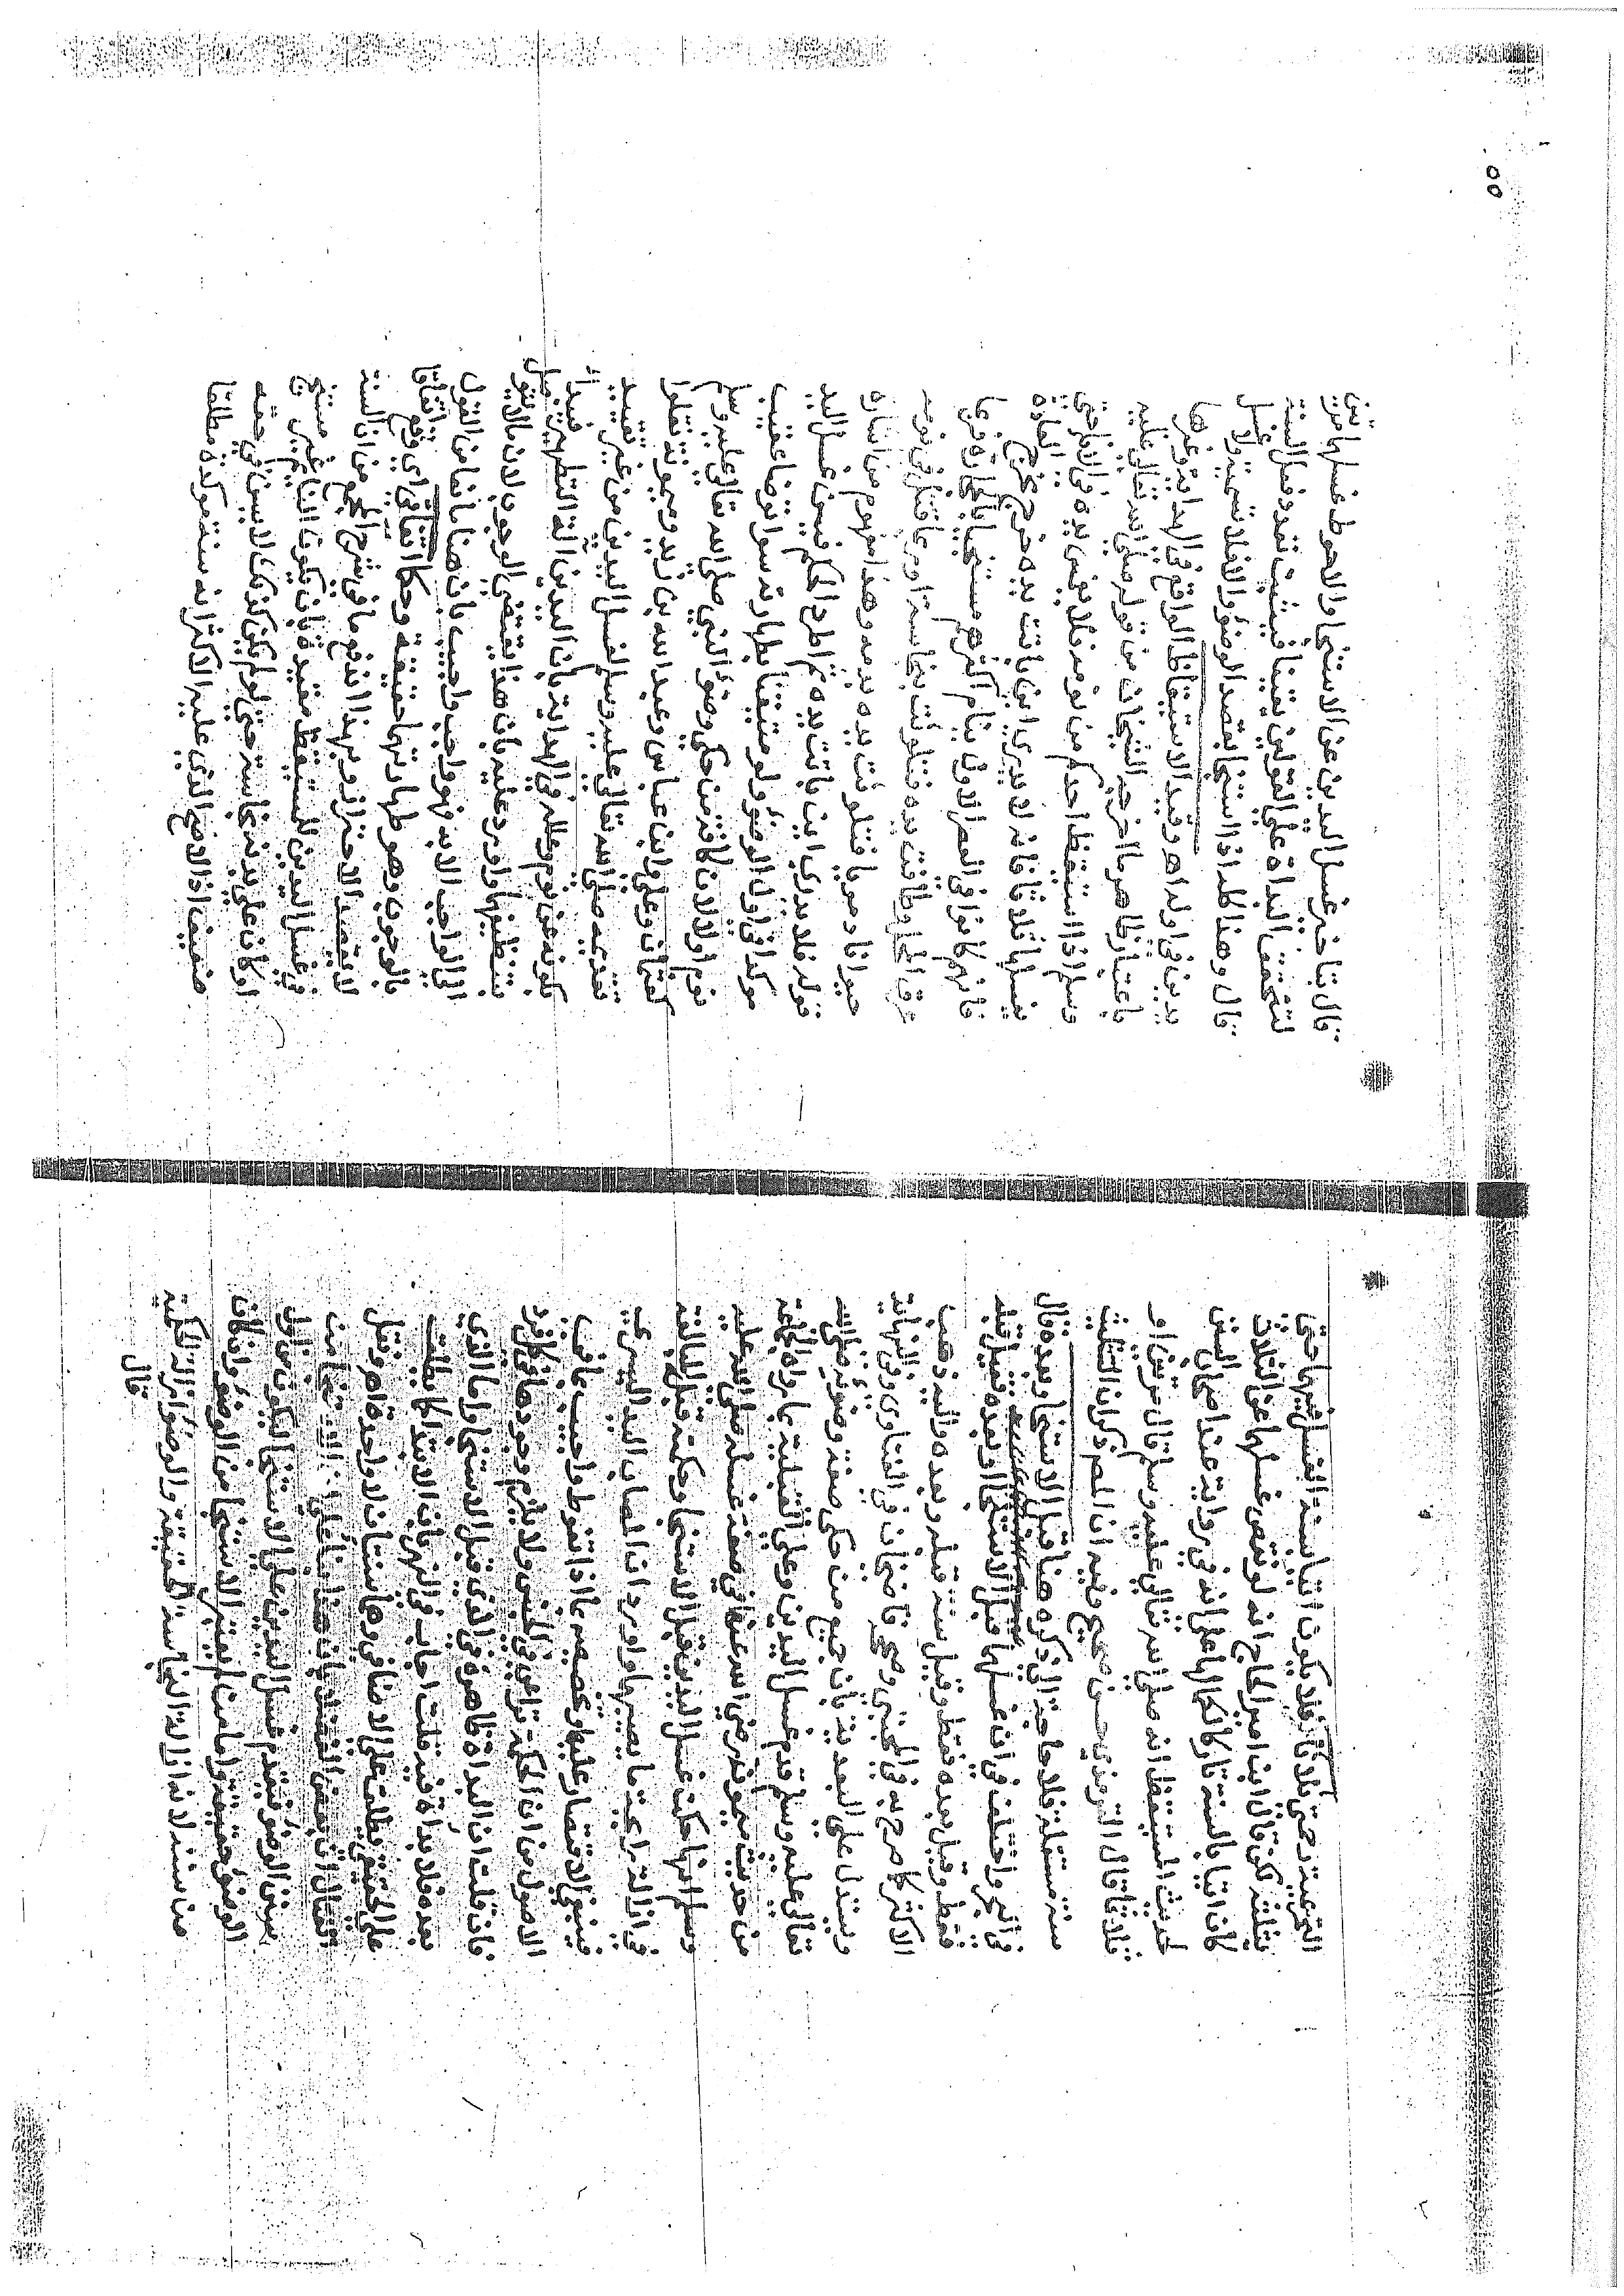 الترغيب حتى بلا تاء فلا يكون اتيا بسنة الغسل فيهما حتى
مثلثه لكن قال ابن امير الحاج انه لو نقص غسلهما عن الثلاث
كان اتيا بالسنة تاركا لكمالها على انه في رواية عند اصحاب السنن
لحديث المستيقظ انه صلى الله تعالى عليه وسلم قال مرتين او
ثلاثا قال الترمذي حسن صحيح وفيه ان المص ذكر ان التثليث
سنة مستقلة فلا حاجة الى ذكره هنا قبل الاستنجا وبعده قال
في البحر واختلف في ان غسلهما قبل الاستنجا او بعده فقيل قبله
فقط وقيل بعده فقط وقيل سنة قبله وبعده واليه ذهب
الاكثر كما صرح به في المجتبى وصححه قاضيخان في الفتاوى وفي النهاية
ويستدل على البعدية بان جميع من حكى صفة وضوئه صلى الله
تعالى عليه وسلم قدم غسل اليدين وعلى القبلية بما رواه الجماعة
من حديث ميمونة رضي الله عنها في صفة غسله صلى الله عليه
وسلم انها حكت غسل اليدين قبل الاستنجا وحكمته قبل المبالغة
في ازالة رايحة ما يصيبهما واورد ان المصاب اليد اليسرى
فينبغي الاقتصار عليها وتخصيصه بما اذا تغوط واجيب بما في
الاصول من ان الحكمة تراعى في الجنس ولا يلزم وجودها في كل فرد
فان قلت ان البداة ظاهرة في الذي قبل الاستنجا واما الذي
بعده فلا بداة فيه قلت اجاب في النهر بان الابتدا كما يطلق
على الحقيقي يطلق على الاضافي وهما سنتان لا واحدة اهـ ونقل
الفتال ان بعض الفضلاء بان هذا مبنى على ان الاستنجا من
سنن الوضؤ فيقدم غسل اليدين على الاستنجا ليكون من اول
الوضؤ حقيقة واما من لم يعتبر الاستنجا من الوضؤ وان كان
من سننه لانه ازالة النجاسة الحقيقية والوضؤ ازالة الحكمية
قال
قال بتاخير غسل اليدين عن الاستنجا والاحوط غسلهما مرتين
لتتحقق البداة على القولين يقينا فيثبت تعدد فعل السنة
قال وهذا كله اذا استنجا بقصد الوضؤ والا فلا تسمية ولا غسل
يدين في اوله اهـ وقيد الاستيقاظ الواقع في الهداية وغيرها
باعتبار ظاهر ما اخرجه الشيخان من قوله صلى الله تعالى عليه
وسلم اذا استيقظ احدكم من نومه فلا يغمس يده في الاناء حتى
يغسلها ثلاثا فانه لا يدري اين باتت يده خرج مخرج العادة
فانهم كانوا في العصر الاول ينام اكثرهم مستنجيا بالحجارة فربما
عرق المحل وطافت يده فتلوثت بنجاسة او ربما قتل في نومه
حيوانا دمويا فتلوثت يده بدمه وهذا مفهوم من اشارة
قوله فلا يدري اين باتت يده ثم اطرد الحكم فيسن غسل اليد
موكدا في اول الوضؤ ولو متيقنا بطهارته سوا توضا عقيب
نوم او لا لان كافة من حكى وضؤ النبي صلى الله تعالى عليه وسلم
كعثمان وعلي وابن عباس وعبد الله بن زيد وميمونة نقلوا
تقديمه صلى الله تعالى عليه وسلم لغسل اليدين من غير تقييد
بكونه عن نوم وعلله في الهداية بان اليدين الة التطهير فيبدأ
بتنظيفها واورد عليه بان هذا يقتضي الوجوب لان ما لا يتوصل
الى الواجب الا به فهو واجب واجيب بان هنا مانعا من القول
بالوجوب وهو طهارتها حقيقة وحكما اتفاقي اي وقع اتفاقا
لا يقصد الاحتراز وبهذا اندفع ما في شرح المجمع من ان السنة
في غسل اليدين للمستيقظ مقيدة بان يكون النائم غير مستنج
او كان على بدنه نجاسة حتى لو لم يكن كذلك لا يسن في حقه
ضعيف اذ الاصح الذي عليه الاكثر انه سنة موكدة مطلقا